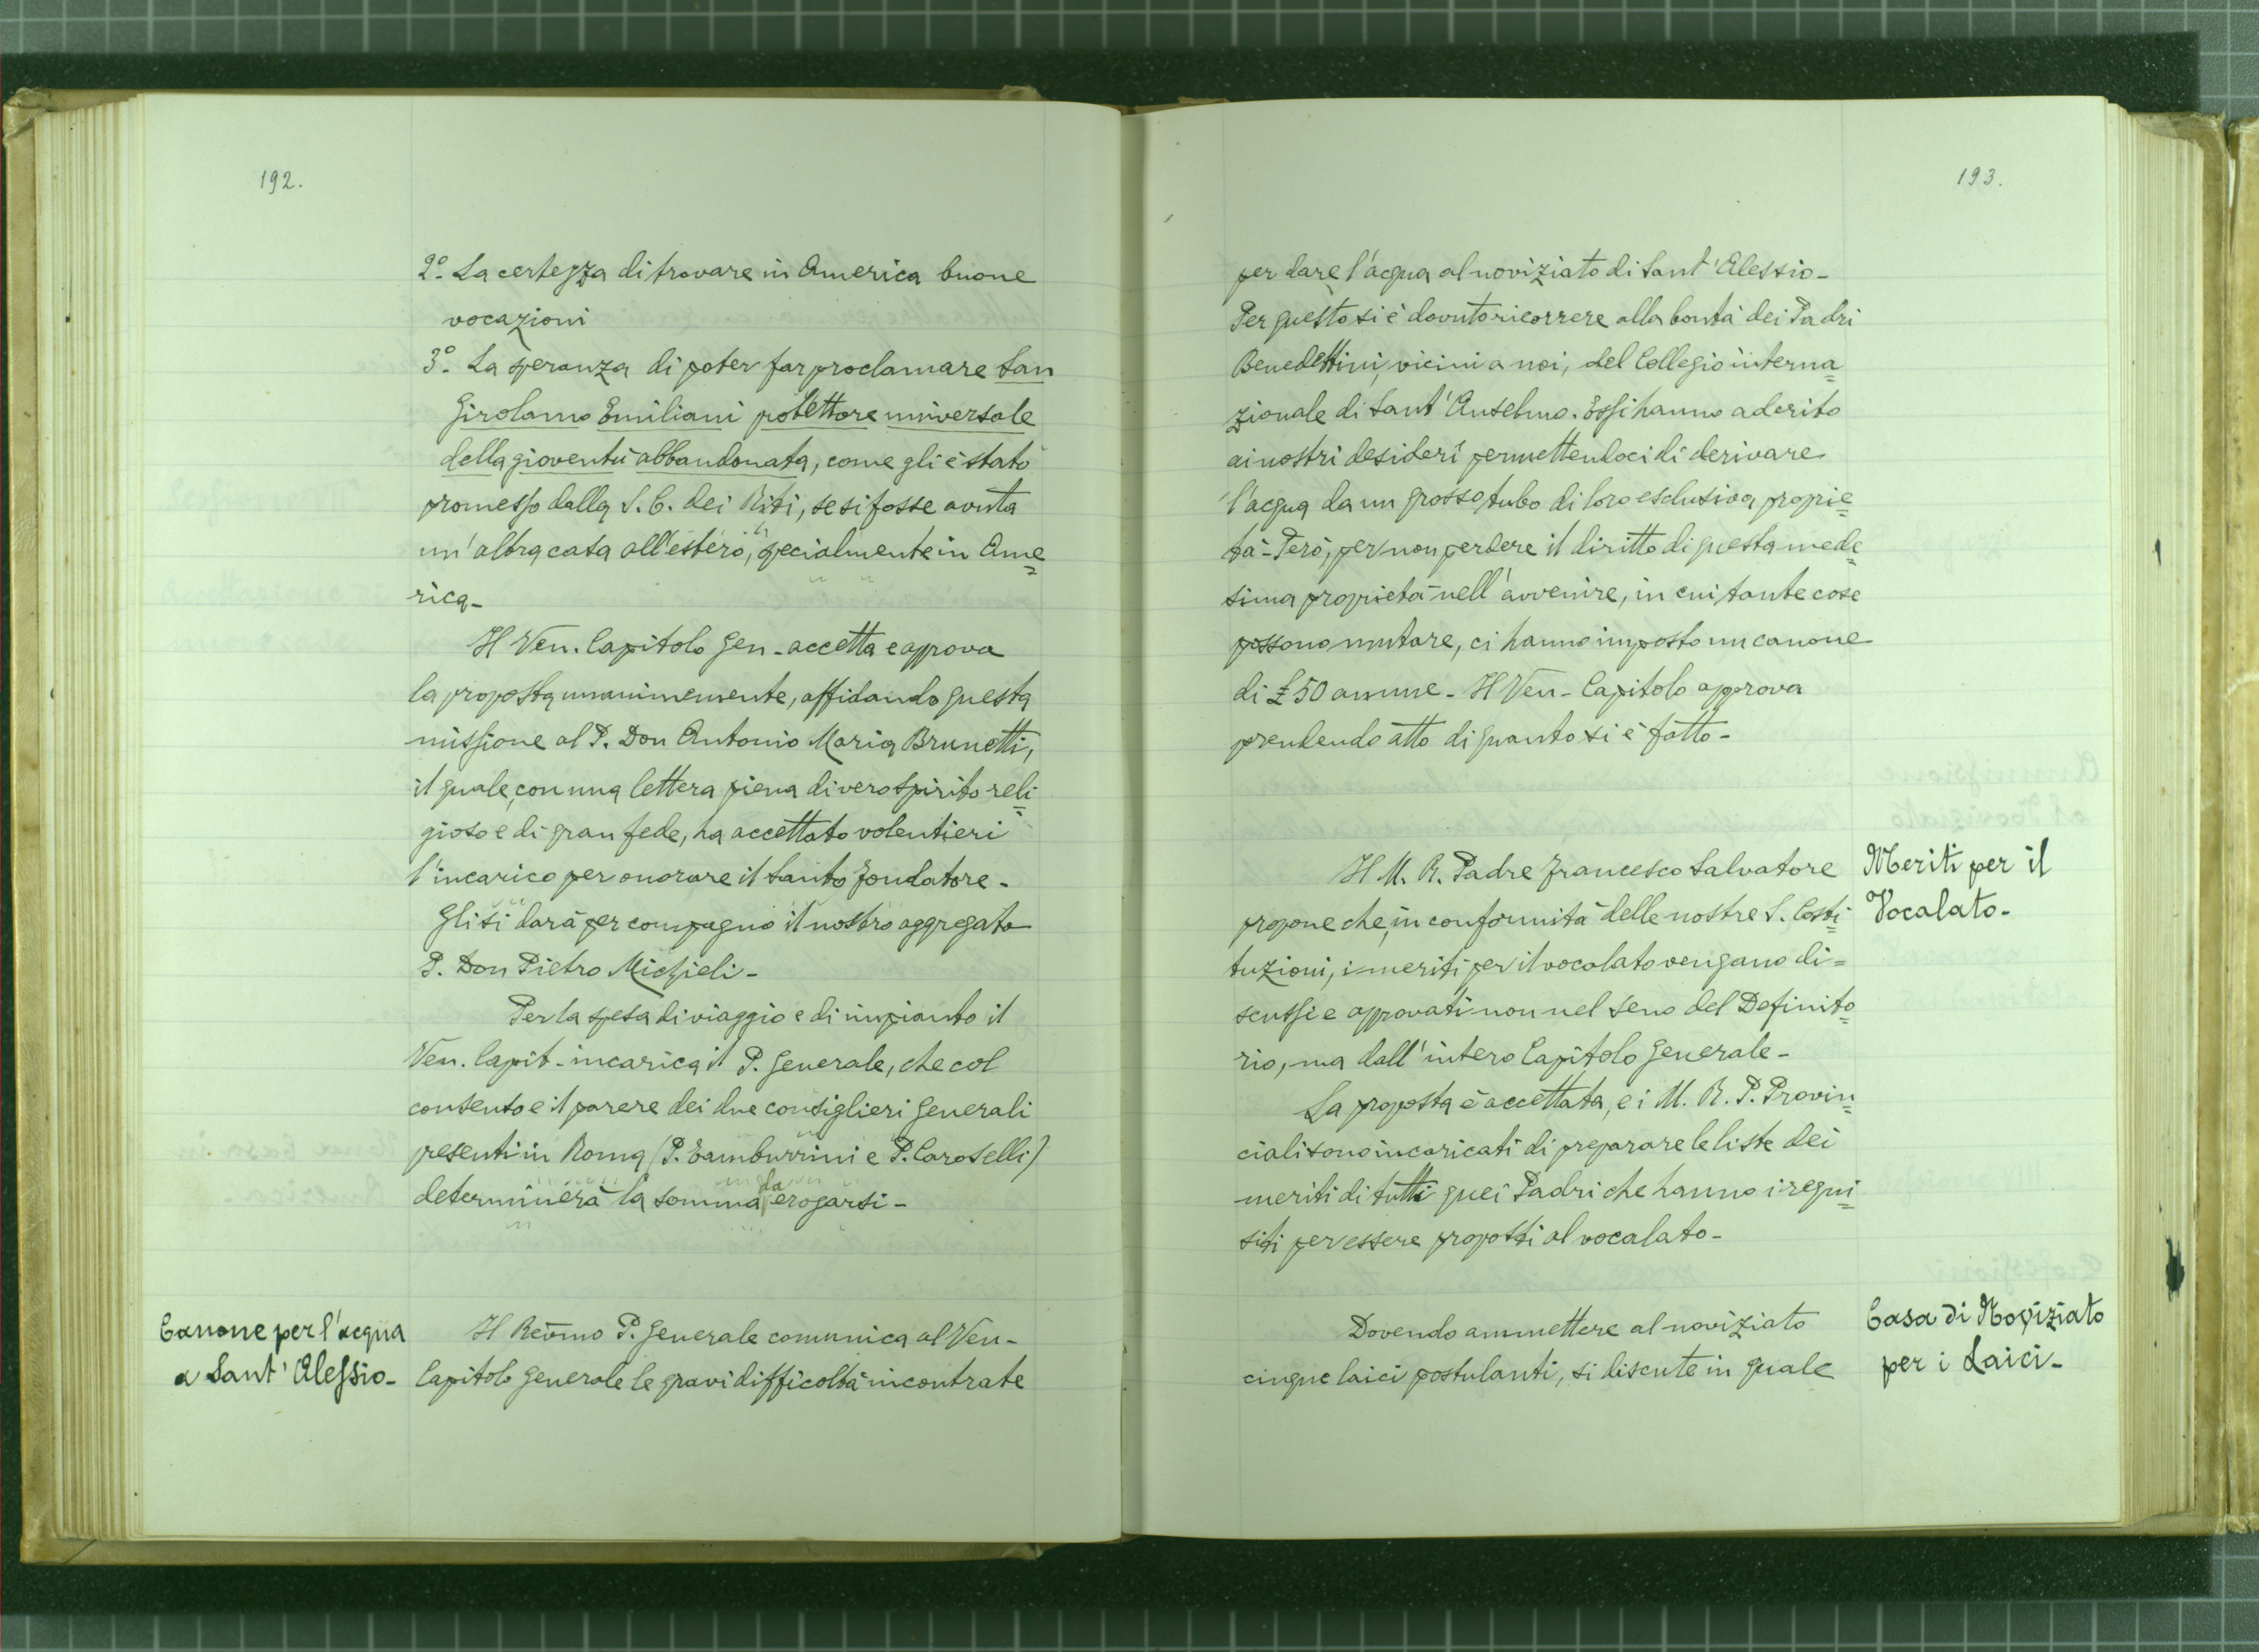 192.
2º- La certezza di trovare in America buone
vocazioni
3º- La speranza di poter far proclamare San
Girolamo Emiliani protettore universale
della gioventù abbandonata, come gli è stato
promesso dalla S. C. dei Riti, se si fosse avuta
un'altra casa all'estero, specialmente in Ame=
rica-
Il Ven. Capitolo Gen- accetta e approva
la proposta unanimemente, affidando questa
missione al P. Don Antonio Maria Brunetti,
il quale, con una lettera piena di vero spirito reli=
gioso e di gran fede, ha accettato volentieri
l'incarico per onorare il Santo Fondatore-
Gli si darà per compagno il nostro aggregato
P. Don Pietro Michieli-
Per la spesa di viaggio e di impianto il
Ven. Capit- incarica il P. Generale, che col
consenso e il parere dei due consiglieri Generali
presenti in Roma (P. Tamburrini e P. Caroselli)
determinerà la somma da erogarsi-
Canone per l'acqua
a Sant'Alessio-
Il Rev̄mo P. Generale comunica al Ven-
Capitolo Generale le gravi difficoltà incontrate
193.
per dare l'acqua al noviziato di Sant'Alessio-
Per questo si è dovuto ricorrere alla bontà dei Padri
Benedettini, vicini a noi, del Collegio interna=
zionale di Sant'Anselmo. Essi hanno aderito
ai nostri desideri permettendoci di derivare
l'acqua da un grosso tubo di loro esclusiva proprie=
tà- Però, per non perdere il diritto di questa mede=
sima proprietà nell'avvenire, in cui tante cose
possono mutare, ci hanno imposto un canone
di £ 50 annue- Il Ven- Capitolo approva
prendendo atto di quanto si è fatto-
Il M. R. Padre Francesco Salvatore
propone che, in conformità delle nostre S. Costi=
tuzioni, i meriti per il vocalato vengano di=
scussi e approvati non nel seno del Definito=
rio, ma dall'intero Capitolo Generale-
Meriti per il
Vocalato-
La proposta è accettata, e i M. R. P. Provin=
ciali sono incaricati di preparare le liste dei
meriti di tutti quei Padri che hanno i requi=
siti per essere proposti al vocalato-
Dovendo ammettere al noviziato
cinque laici postulanti, si discute in quale
Casa di Noviziato
per i Laici-